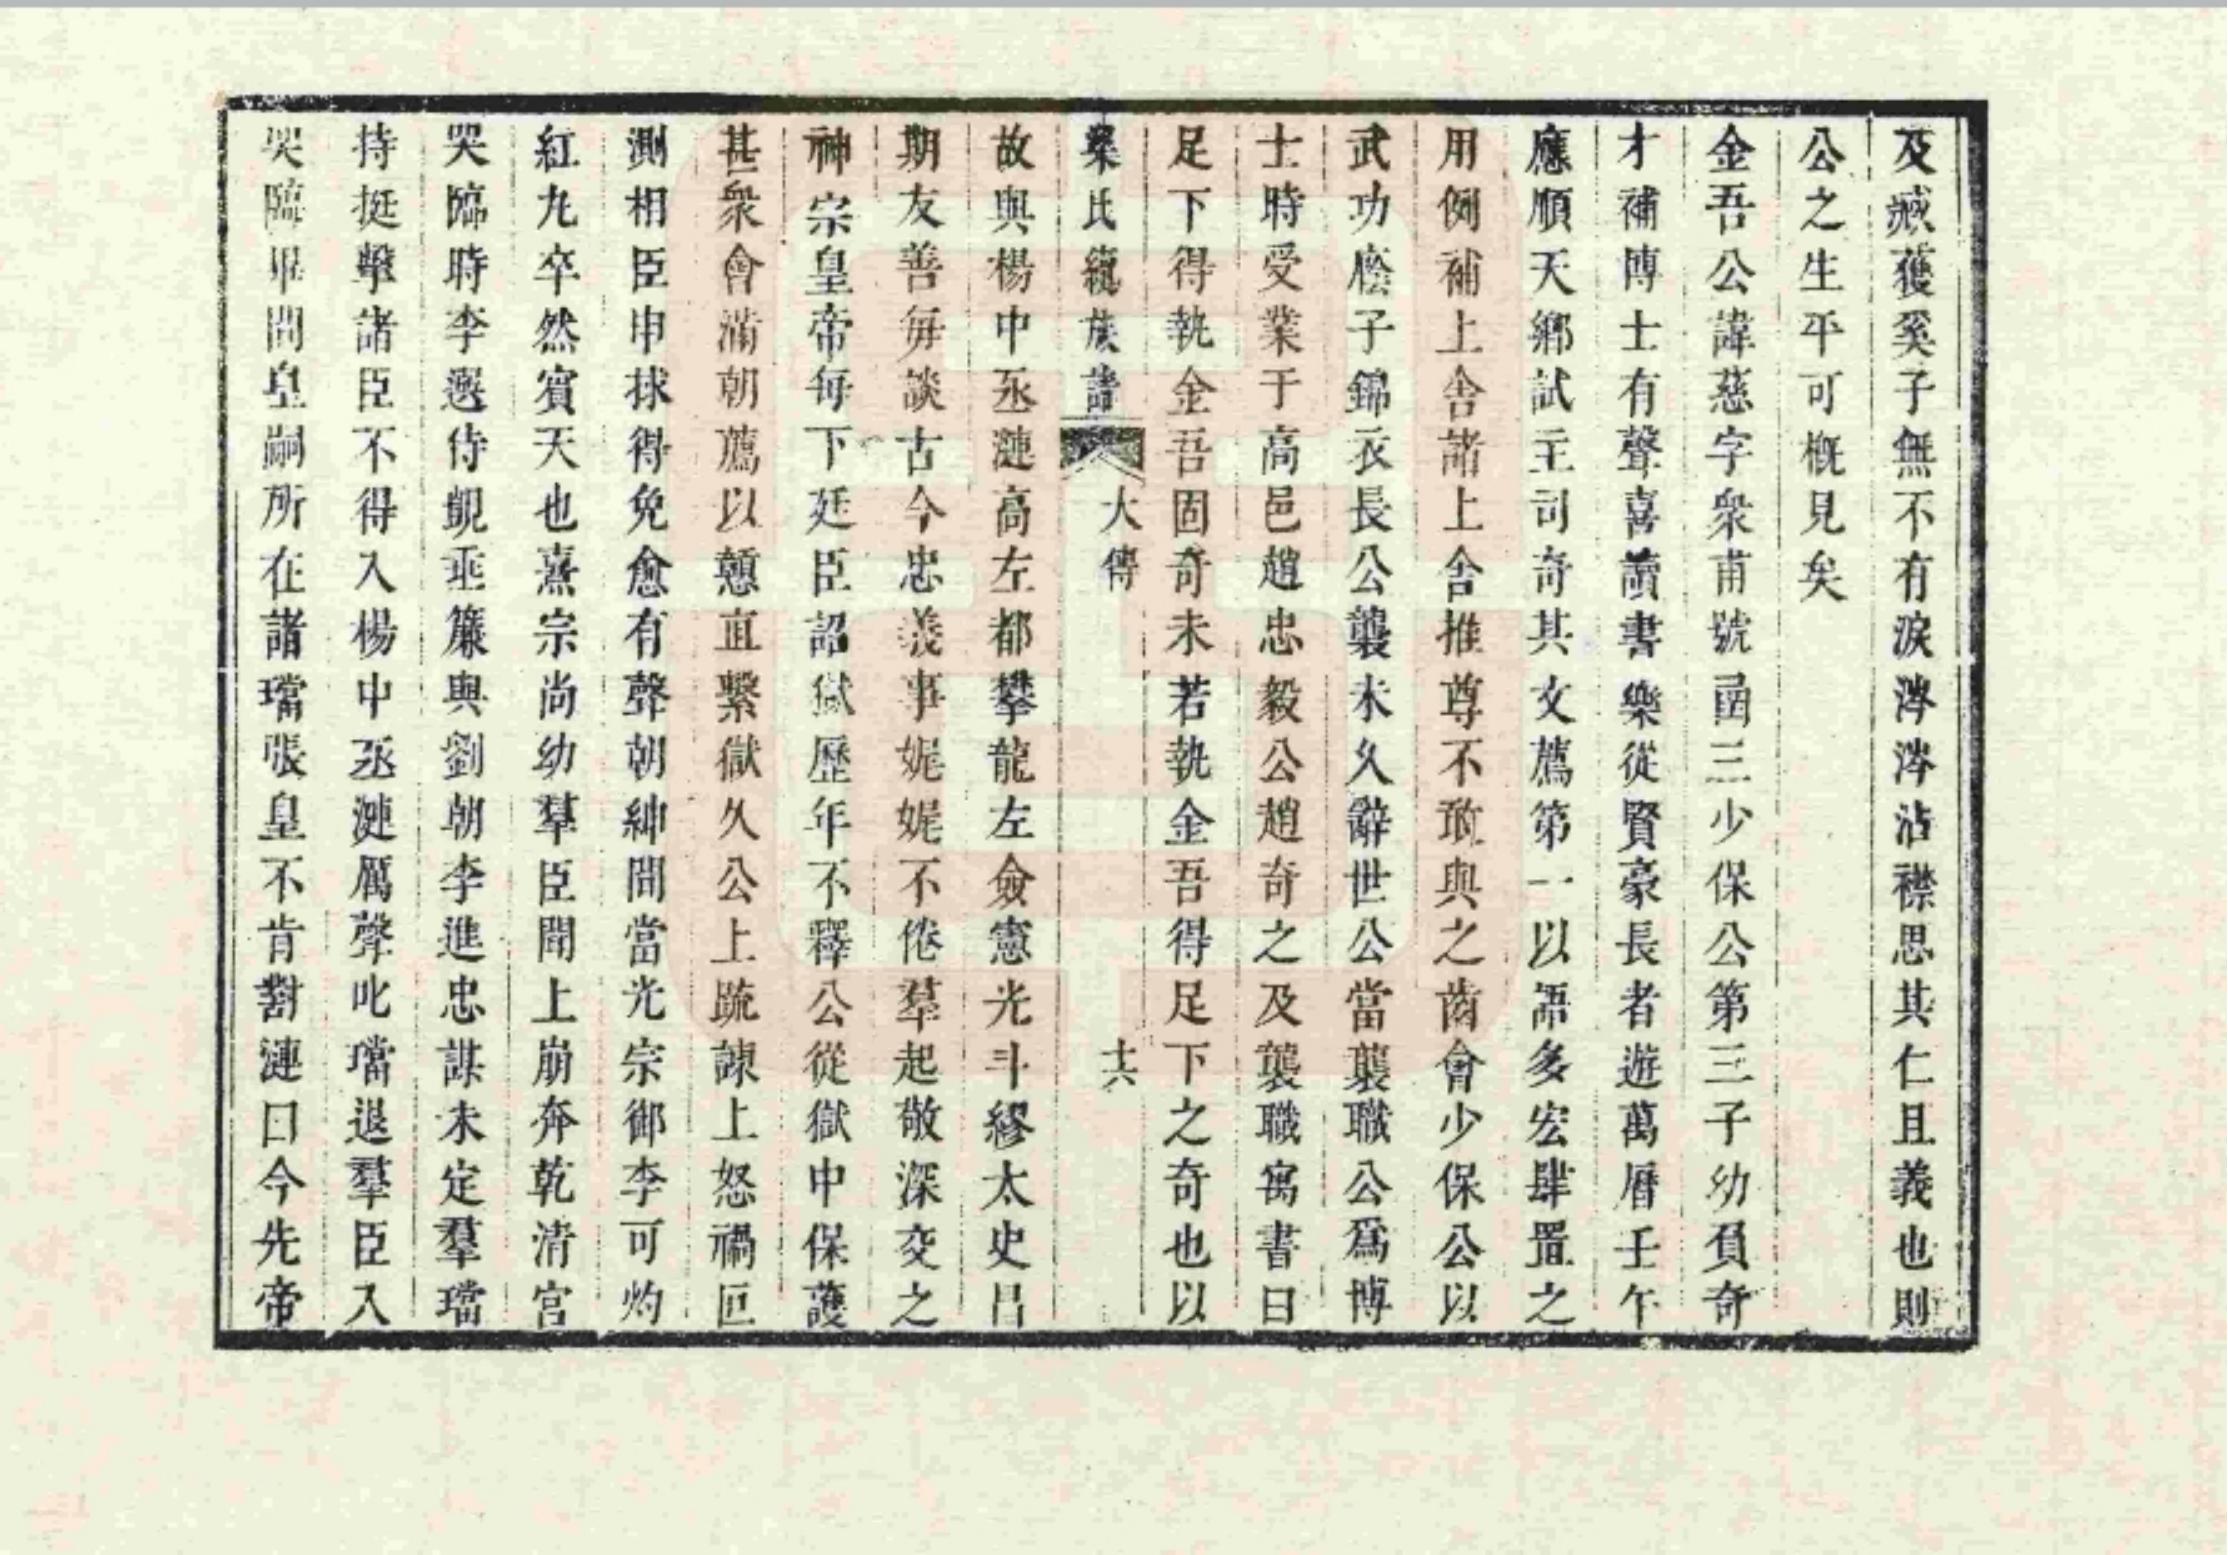 及臧獲奚子無不有淚涔涔沾襟思其仁且義也則
公之生平可槪見矣
金吾公諱慈字衆甫號凾三少保公第三子幼負奇
才補博士有聲喜讀書樂從賢豪長者遊萬曆壬午
應順天鄉試主司奇其文薦第一以語多宏肆置之
用例補上舍諸上舍推尊不敢與之齒會少保公以
武功廕子錦衣長公襲未久辭世公當襲職公爲博
士時受業于高邑趙忠毅公趙奇之及襲職寓書曰
足下得執金吾固奇未若執金吾得足下之奇也以
氏統族譜
大傳
十六
故與楊中丞漣高左都攀龍左僉憲光斗繆太史昌
期友善每談古今忠義事娓娓不倦羣起敬深交之
神宗皇帝每下廷臣詔獄歷年不釋公從獄中保護
甚衆會滿朝薦以戇直繫獄久公上疏諫上怒禍叵
測相臣申捄得免愈有聲朝紳間當光宗御李可灼
紅丸卒然賓天也熹宗尚幼羣臣聞上崩奔乾清宮
哭臨時李選侍覬垂簾與劉朝李進忠謀未定羣璫
持挺擊諸臣不得入楊中丞漣厲聲叱璫退羣臣入
哭臨畢問皇嗣所在諸璫張皇不肯對漣曰今先帝